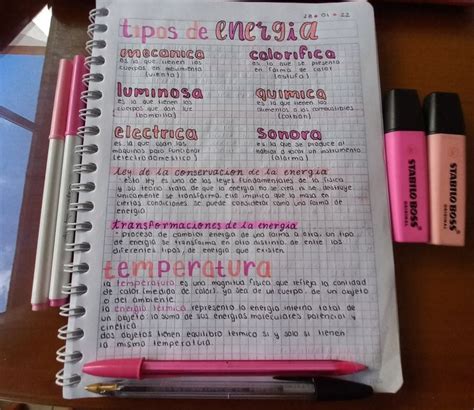 28 • 01 • 22
tipos de energia
mecanica
es la que tienen los
cuerpos en movimiento
(viento)
calorifica
es la que se presenta
en forma de calor
(estufa)
luminosa
es la que tienen los
cuerpos que dan luz
(bombilla)
quimica
es la que tienen los
alimentos o los combustibles
(carbón)
electrica
es la que usan las
maquinas para funcionar
(electrodomestico)
sonora
es la que se produce al
hablar o tocar un instrumento
(alarma)
Ley de la conservacion de la energia
esta ley es una de las leyes fundamentales de la fisica
y su teoria trata de que la energia no se crea ni se destruye
unicamente se transforma eso implica que la masa en
ciertas condiciones se puede considerar como una forma de
energia
transformaciones de la energia
proceso de cambiar energia de una forma a otra, un tipo
de energia se transforma en otro distinto de entre los
diferentes tipos de energia que existen
temperatura
la temperatura es una magnitud fisica que refleja la cantidad
de calor (medida de calor). ya sea de un cuerpo de un objeto
o del ambiente.
la energia termica representa la energia interna total de
un objeto: la suma de sus energias moleculares potencial y
cinetica
dos objetos tienen equilibrio termico si y solo si tienen
la misma temperatura.
STABILO BOSS
ORIGINAL
STABILO BOSS
ORIGINAL